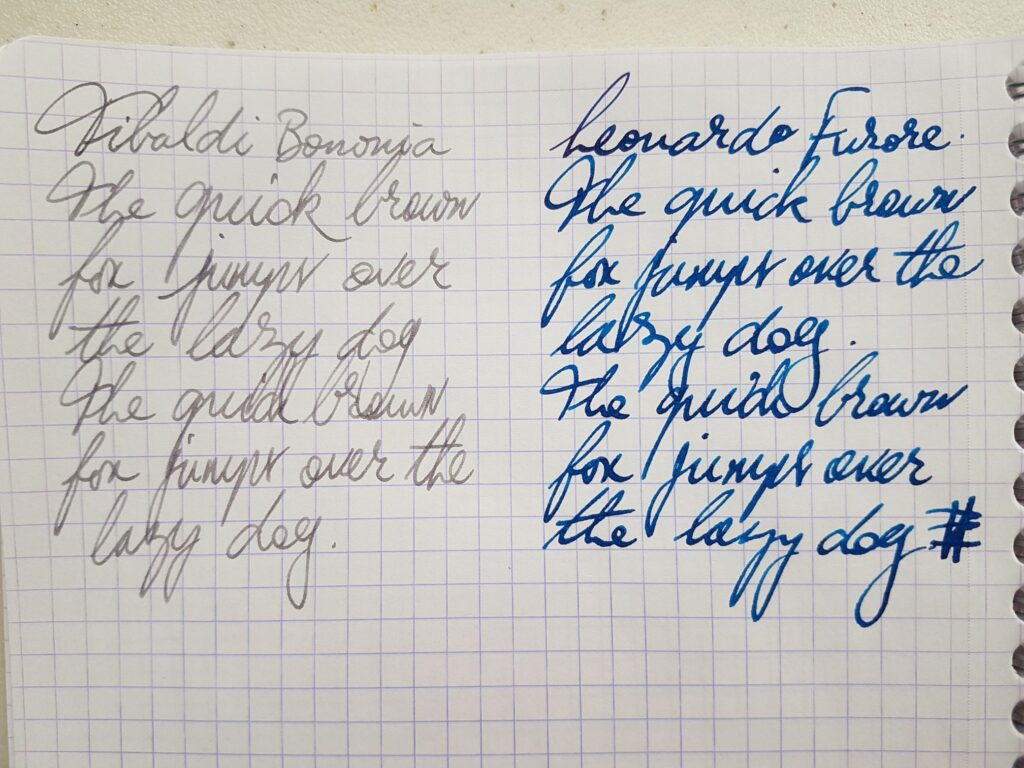 Tibaldi Bononia
The quick brown
fox jumps over
the lazy dog
The quick brown
fox jumps over the
lazy dog.
Leonardo Furore.
The quick brown
fox jumps over the
lazy dog.
The quick brown
fox jumps over
the lazy dog #